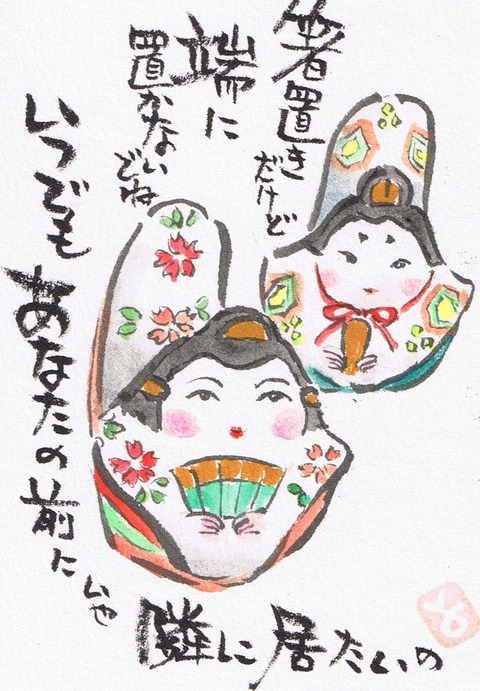 箸置き
だけど
端に
置かない
でね
いつでも
あなたの前に
いや
隣に居たいの